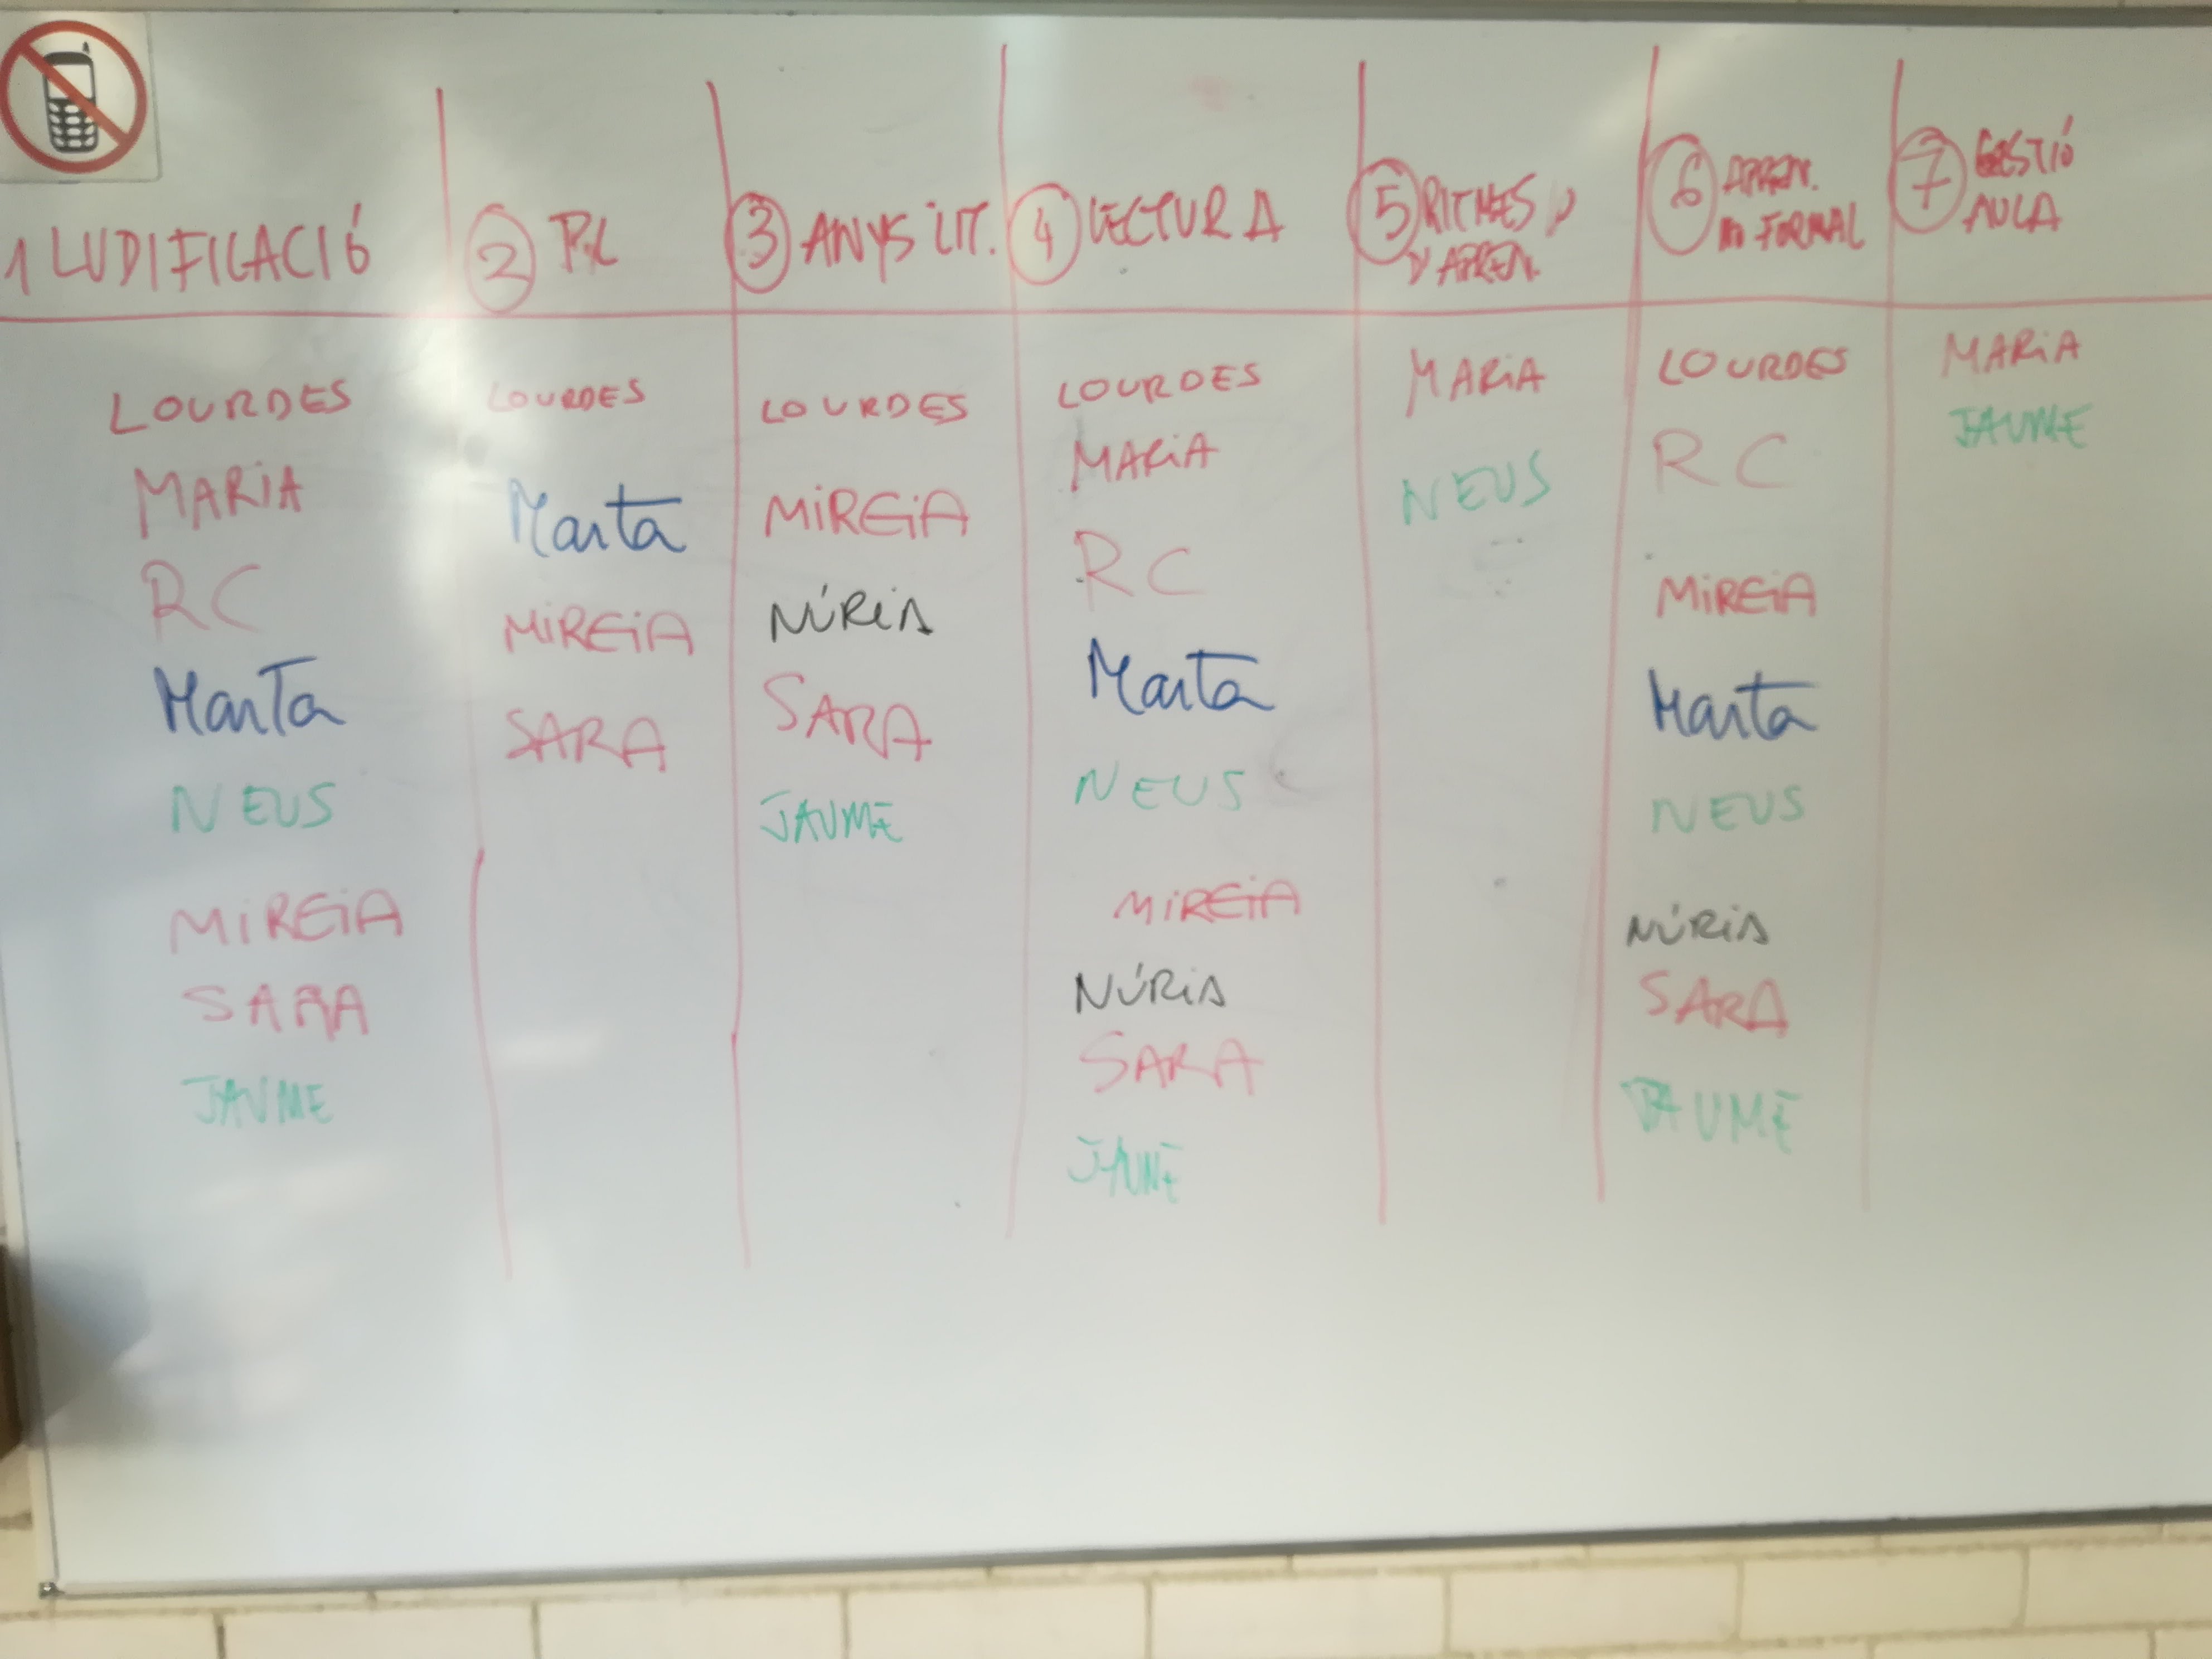 1 LUDIFICACIÓ
LOURDES
MARIA
RC
Marta
NEUS
MIREIA
SARA
JAUME
2
LOURDES
Marta
MIREIA
SARA
3 ANYS LIT.
LOURDES
MIREIA
NÚRIA
SARA
JAUME
4 LECTURA
LOURDES
MARIA
RC
Marta
NEUS
MIREIA
NÚRIA
SARA
JAUME
5 RITMES
D'APREN.
MARIA
NEUS
6 APREN.
FORMAL
LOURDES
RC
MIREIA
Marta
NEUS
NÚRIA
SARA
JAUME
7 GESTIÓ
AULA
MARIA
JAUME